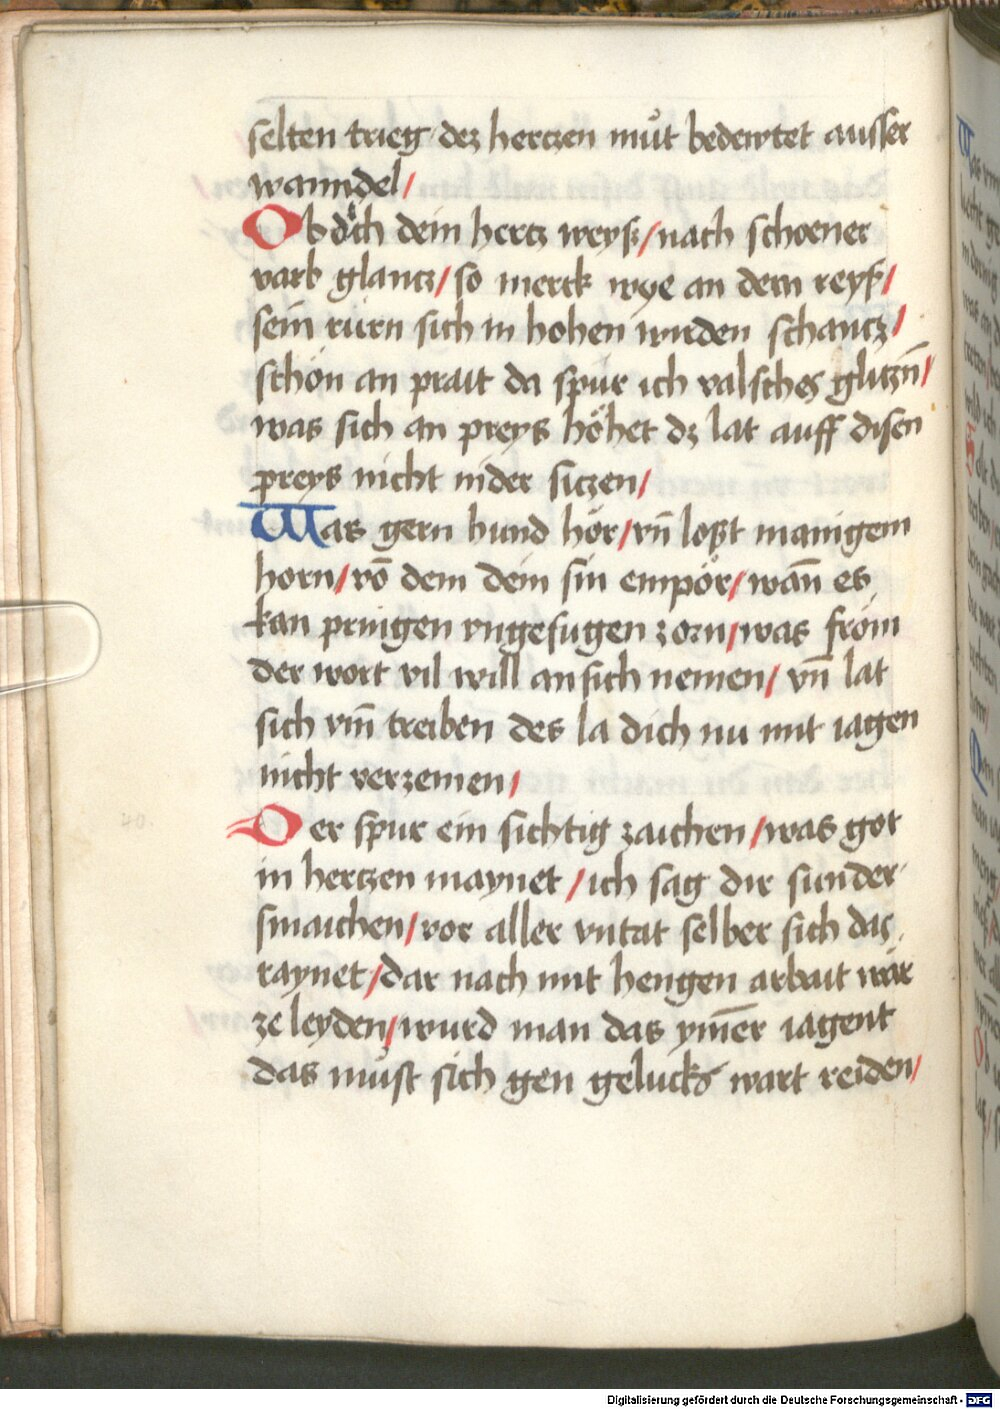 selten trieg dez hertzen mu̍t bedewtet ausser
wanndel/
Ob dich dein hertz weyß/nach schoener
varb glantz/so merck wye an dem reyß/
sein rürn sich in hohen wirden schantz/
schön an prait da spür ich valsches glitzn̄/
was sich an preys höhet dz lat auff disen
preys nicht nider siczen/
Was gern hund hör/vn̄ loßt manigem
horn/vō dem dein sin empör/wan̄ es
kan pringen vngefugen zorn/was from
der wort vil will an sich nemen/ vn̄ lat
sich vm̄ treiben des la dich nu mit iagen
nicht verzemen/
Der spur ein sichtig zaichen/was got
in hertzen maynet/ich sag dir sunder
smaichen/vor aller vntat selber sich das
raynet/dar nach mit hengen arbait wär
ze leyden/wurd man das ym̄er iagent
das müst sich gen gelucks wart reiden/
40.
Digitalisierung gefördert durch die Deutsche Forschungsgemeinschaft - DFG